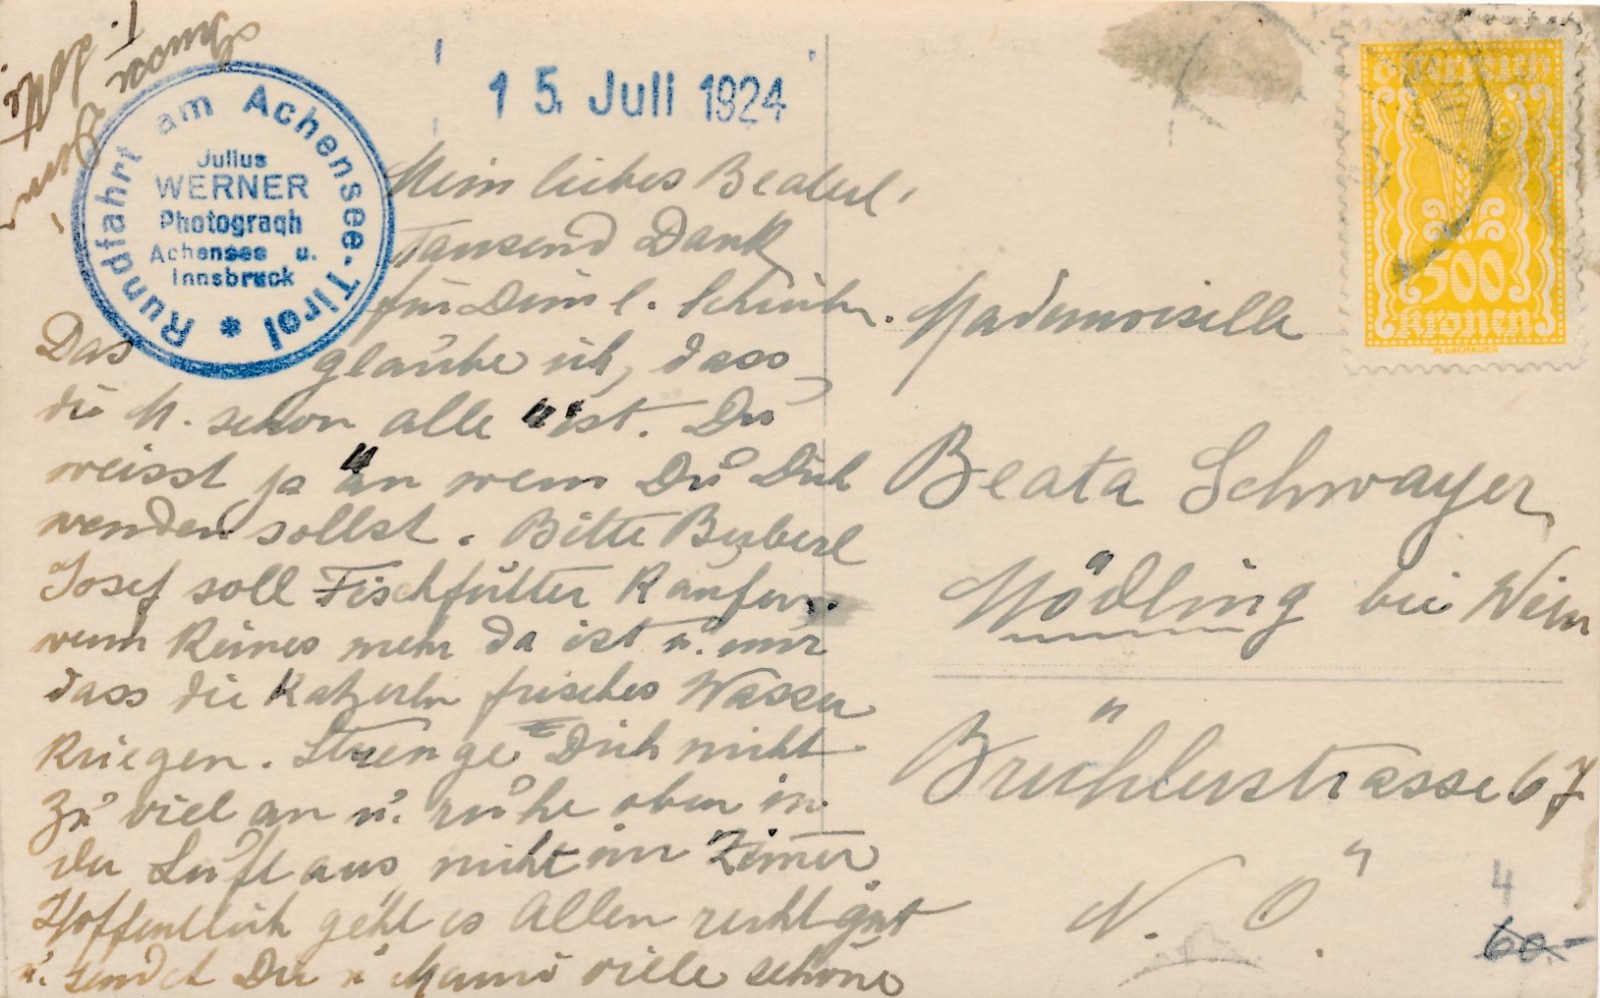 15. Juli 1924
Rundfahrt am Achensee-Tirol *
Julius
WERNER
Photograph
Achensee u.
Innsbruck
Mein liebes Beaterl,
Tausend Dank
für Dein l. Schreiben.
Das glaube ich, dass
die M. schon alle ist. Du
weisst ja an wem Du Dich
wenden sollst. Bitte Burberl
Josef soll Fischfutter kaufen
wenn keines mehr da ist u. nur
dass die Katzerln frisches Wasser
kriegen. Strenge Dich nicht
zu viel an u. ruhe oben in
der Luft aus nicht im Zimer
Hoffentlich geht es Allen recht gut
u. sendet Dir u Mami viele schöne
Österreich
500
Kronen
Mademoiselle
Beata Schwayer
Mödling bei Wien
Brühlerstrasse 67
N. Ö.
4
60.-